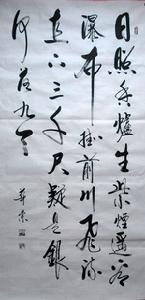 日照香爐生紫煙遙看
瀑布掛前川飛流
直下三千尺疑是銀
河落九天